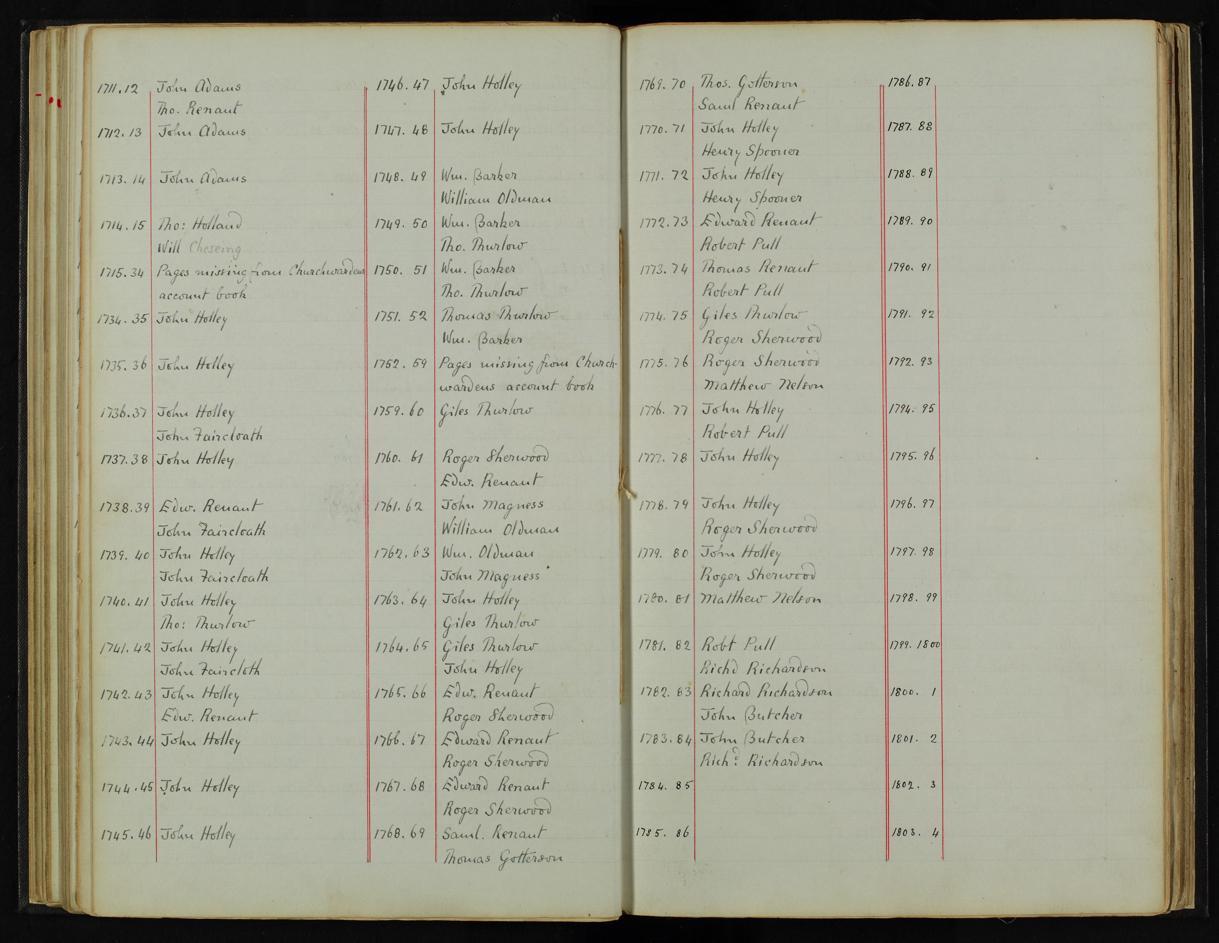 1711.12 John Adams
Tho. Renaut
1712.13 John Adams
1713.14 John Adams
1714.15 Tho: Holland
Will Cheseing
1715.34 Pages missing from Churchwardens
account book
1734.35 John Holley
1735.36 John Holley
1736.37 John Holley
John Faircloath
1737.38 John Holley
1738.39 Edw. Renaut
John Faircloath
1739.40 John Holley
John Faircloath
1740.41 John Holley
Tho: Thurlow
1741.42 John Holley
John Faircloth
1742.43 John Holley
Edw. Renaut
1743.44 John Holley
1744.45 John Holley
1745.46 John Holley
1746.47 John Holley
1747.48 John Holley
1748.49 Wm. Barker
William Oldman
1749.50 Wm. Barker
Tho. Thurlow
1750.51 Wm. Barker
Tho. Thurlow
1751.52 Thomas Thurlow
Wm. Barker
1752.59 Pages missing from Church-
wardens account book
1759.60 Giles Thurlow
1760.61 Roger Sherwood
Edw. Renaut
1761.62 John Magness
William Oldman
1762.63 Wm. Oldman
John Magness
1763.64 John Holley
Giles Thurlow
1764.65 Giles Thurlow
John Holley
1765.66 Edw. Renaut
Roger Sherwood
1766.67 Edward Renaut
Roger Sherwood
1767.68 Edward Renaut
Roger Sherwood
1768.69 Saml. Renaut
Thomas Gotterson
1769.70 Thos. Gotterson
Saml Renaut
1770.71 John Holley
Henry Spooner
1771.72 John Holley
Henry Spooner
1772.73 Edward Renaut
Robert Pull
1773.74 Thomas Renaut
Robert Pull
1774.75 Giles Thurlow
Roger Sherwood
1775.76 Roger Sherwood
Matthew Nelson
1776.77 John Holley
Robert Pull
1777.78 John Holley
1778.79 John Holley
Roger Sherwood
1779.80 John Holley
Roger Sherwood
1780.81 Matthew Nelson
1781.82 Robt Pull
Richd Richardson
1782.83 Richard Richardson
John Butcher
1783.84 John Butcher
Richd. Richardson
1784.85
1785.86
1786.87
1787.88
1788.89
1789.90
1790.91
1791.92
1792.93
1794.95
1795.96
1796.97
1797.98
1798.99
1799.1800
1800.1
1801.2
1802.3
1803.4